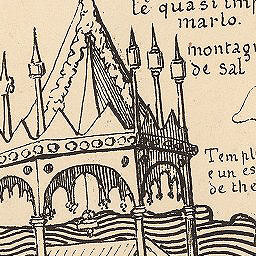 le quasi imp
marlo.
montagn
de sal
Templ
e un es
de the